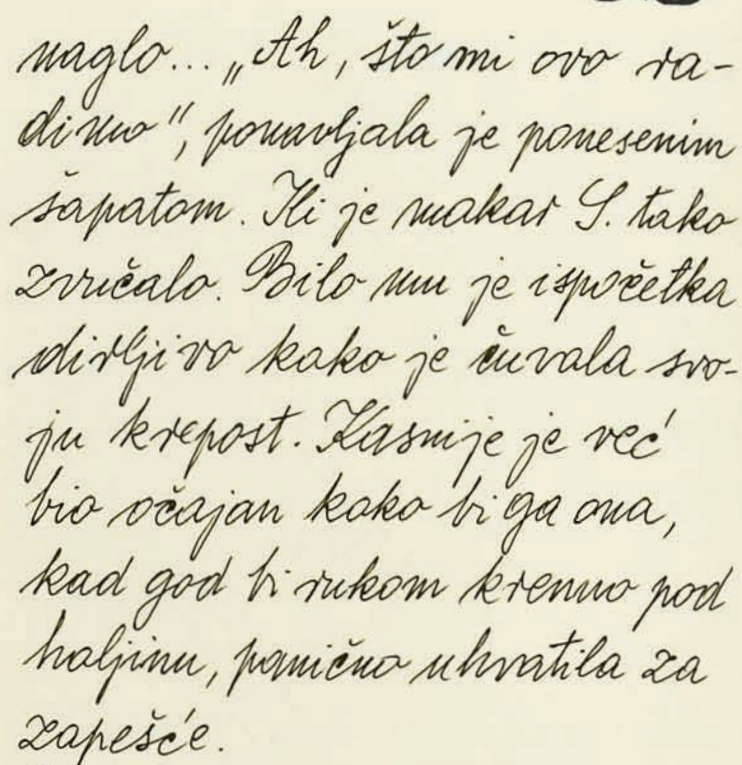 naglo... „Ah, što mi ovo ra-
dimo", ponavljala je ponesenim
šapatom. Ili je makar S. tako
zvučalo. Bilo mu je ispočetka
dirljivo kako je čuvala svo-
ju krepost. Kasnije je već
bio očajan kako bi ga ona,
kad god bi rukom krenuo pod
haljinu, panično uhvatila za
zapešće.